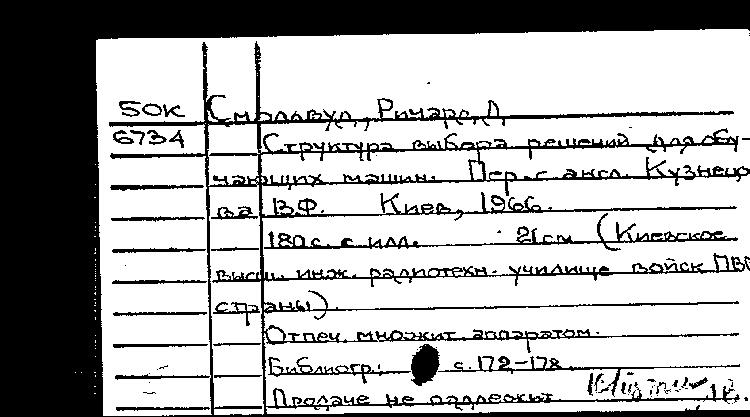 50К Смоллвуд, Ричард Д.
6734 Структура выбора решений для обу-
чающих машин. Пер. с англ. Кузнецо
ва В.Ф. Киев, 1966.
180 с. с илл. 21 см (Киевское
высш. инж. радиотехн. училище войск ПВО
страны).
Отпеч. множит. аппаратом.
Библиогр.: с. 172-178
Продаже не надлежит.